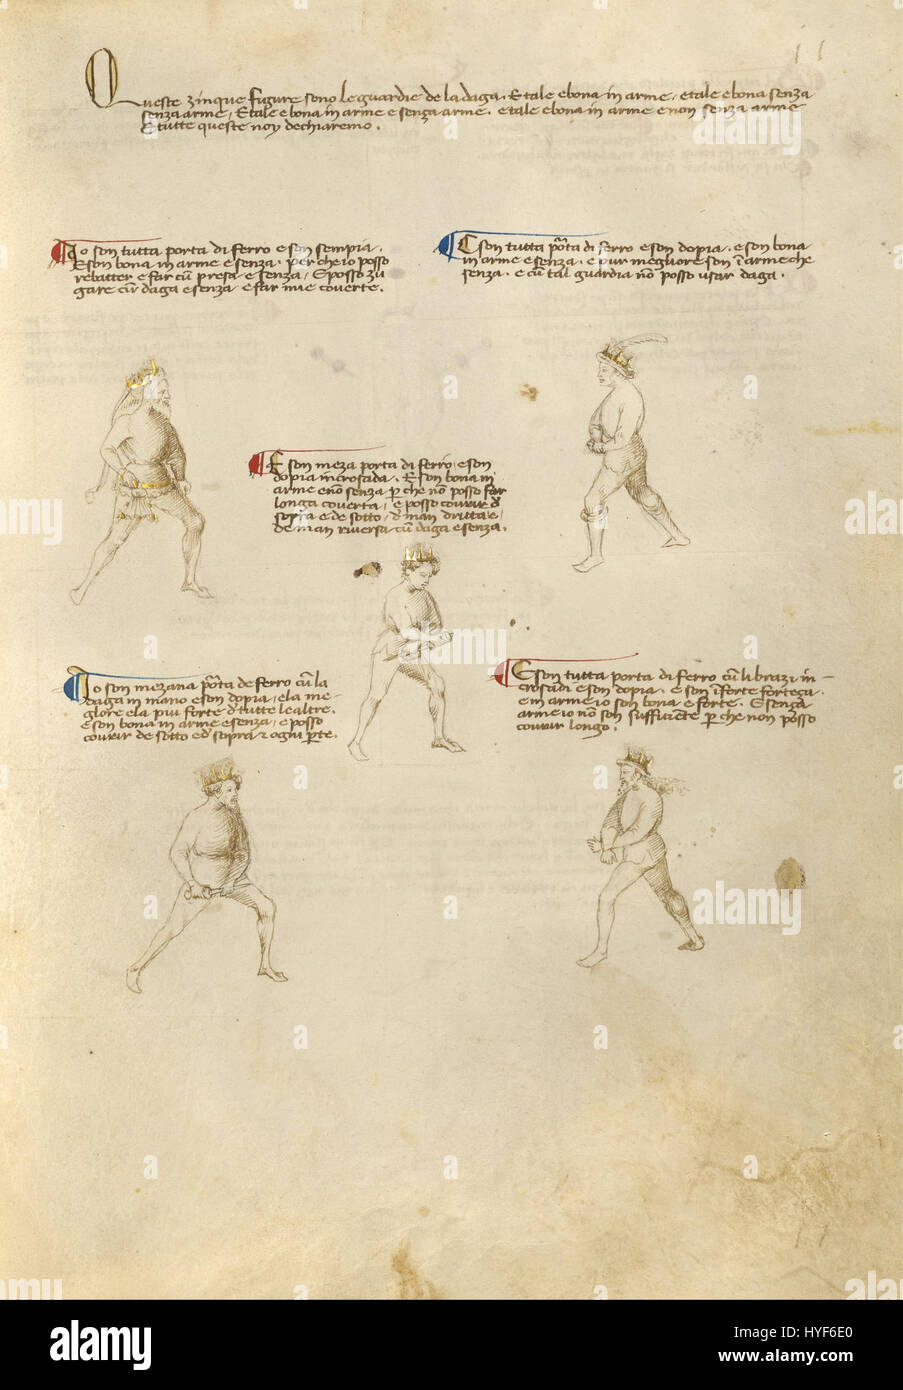 11
Queste zinque figure sono le guardie de la daga. E tale e bona in arme, e tale e bona senza
senza arme, E tale e bona in arme e senza arme. e tale e bona in arme e non senza arme
E tutte queste noy dechiaremo.
Io son tutta porta di ferro e son sempia.
E son bona in arme e senza. per che io posso
rebatter e far cum presa e senza, E posso zu
gare cum daga e senza e far mie coverte.
E son tutta pta di ferro e son dopia. e son bona
in arme e senza. e pur megliore son i arme che
senza. e cu tal guardia no posso usar daga.
E son meza porta di ferro e son
dopia incrosada. E son bona in
arme e no senza p che no posso far
longa coverta, e posso covrir d
sopra e de sotto, d man dritta e
de man riversa cum daga e senza.
Io son mezana pta de ferro cu la
daga in mano e son dopia, e la me-
gliore e la piu forte d tutte le altre.
e son bona in arme e senza, e posso
covrir de sotto e d sopra z ogni pte.
E son tutta porta di ferro cu li brazi in-
crosadi e son dopia. e son i forte forteza.
e in arme io son bona e forte. E senza
arme io no son sufficiete p che non posso
covrir longo.
11
a
alamy
alamy stock photo
HYF6E0
www.alamy.com